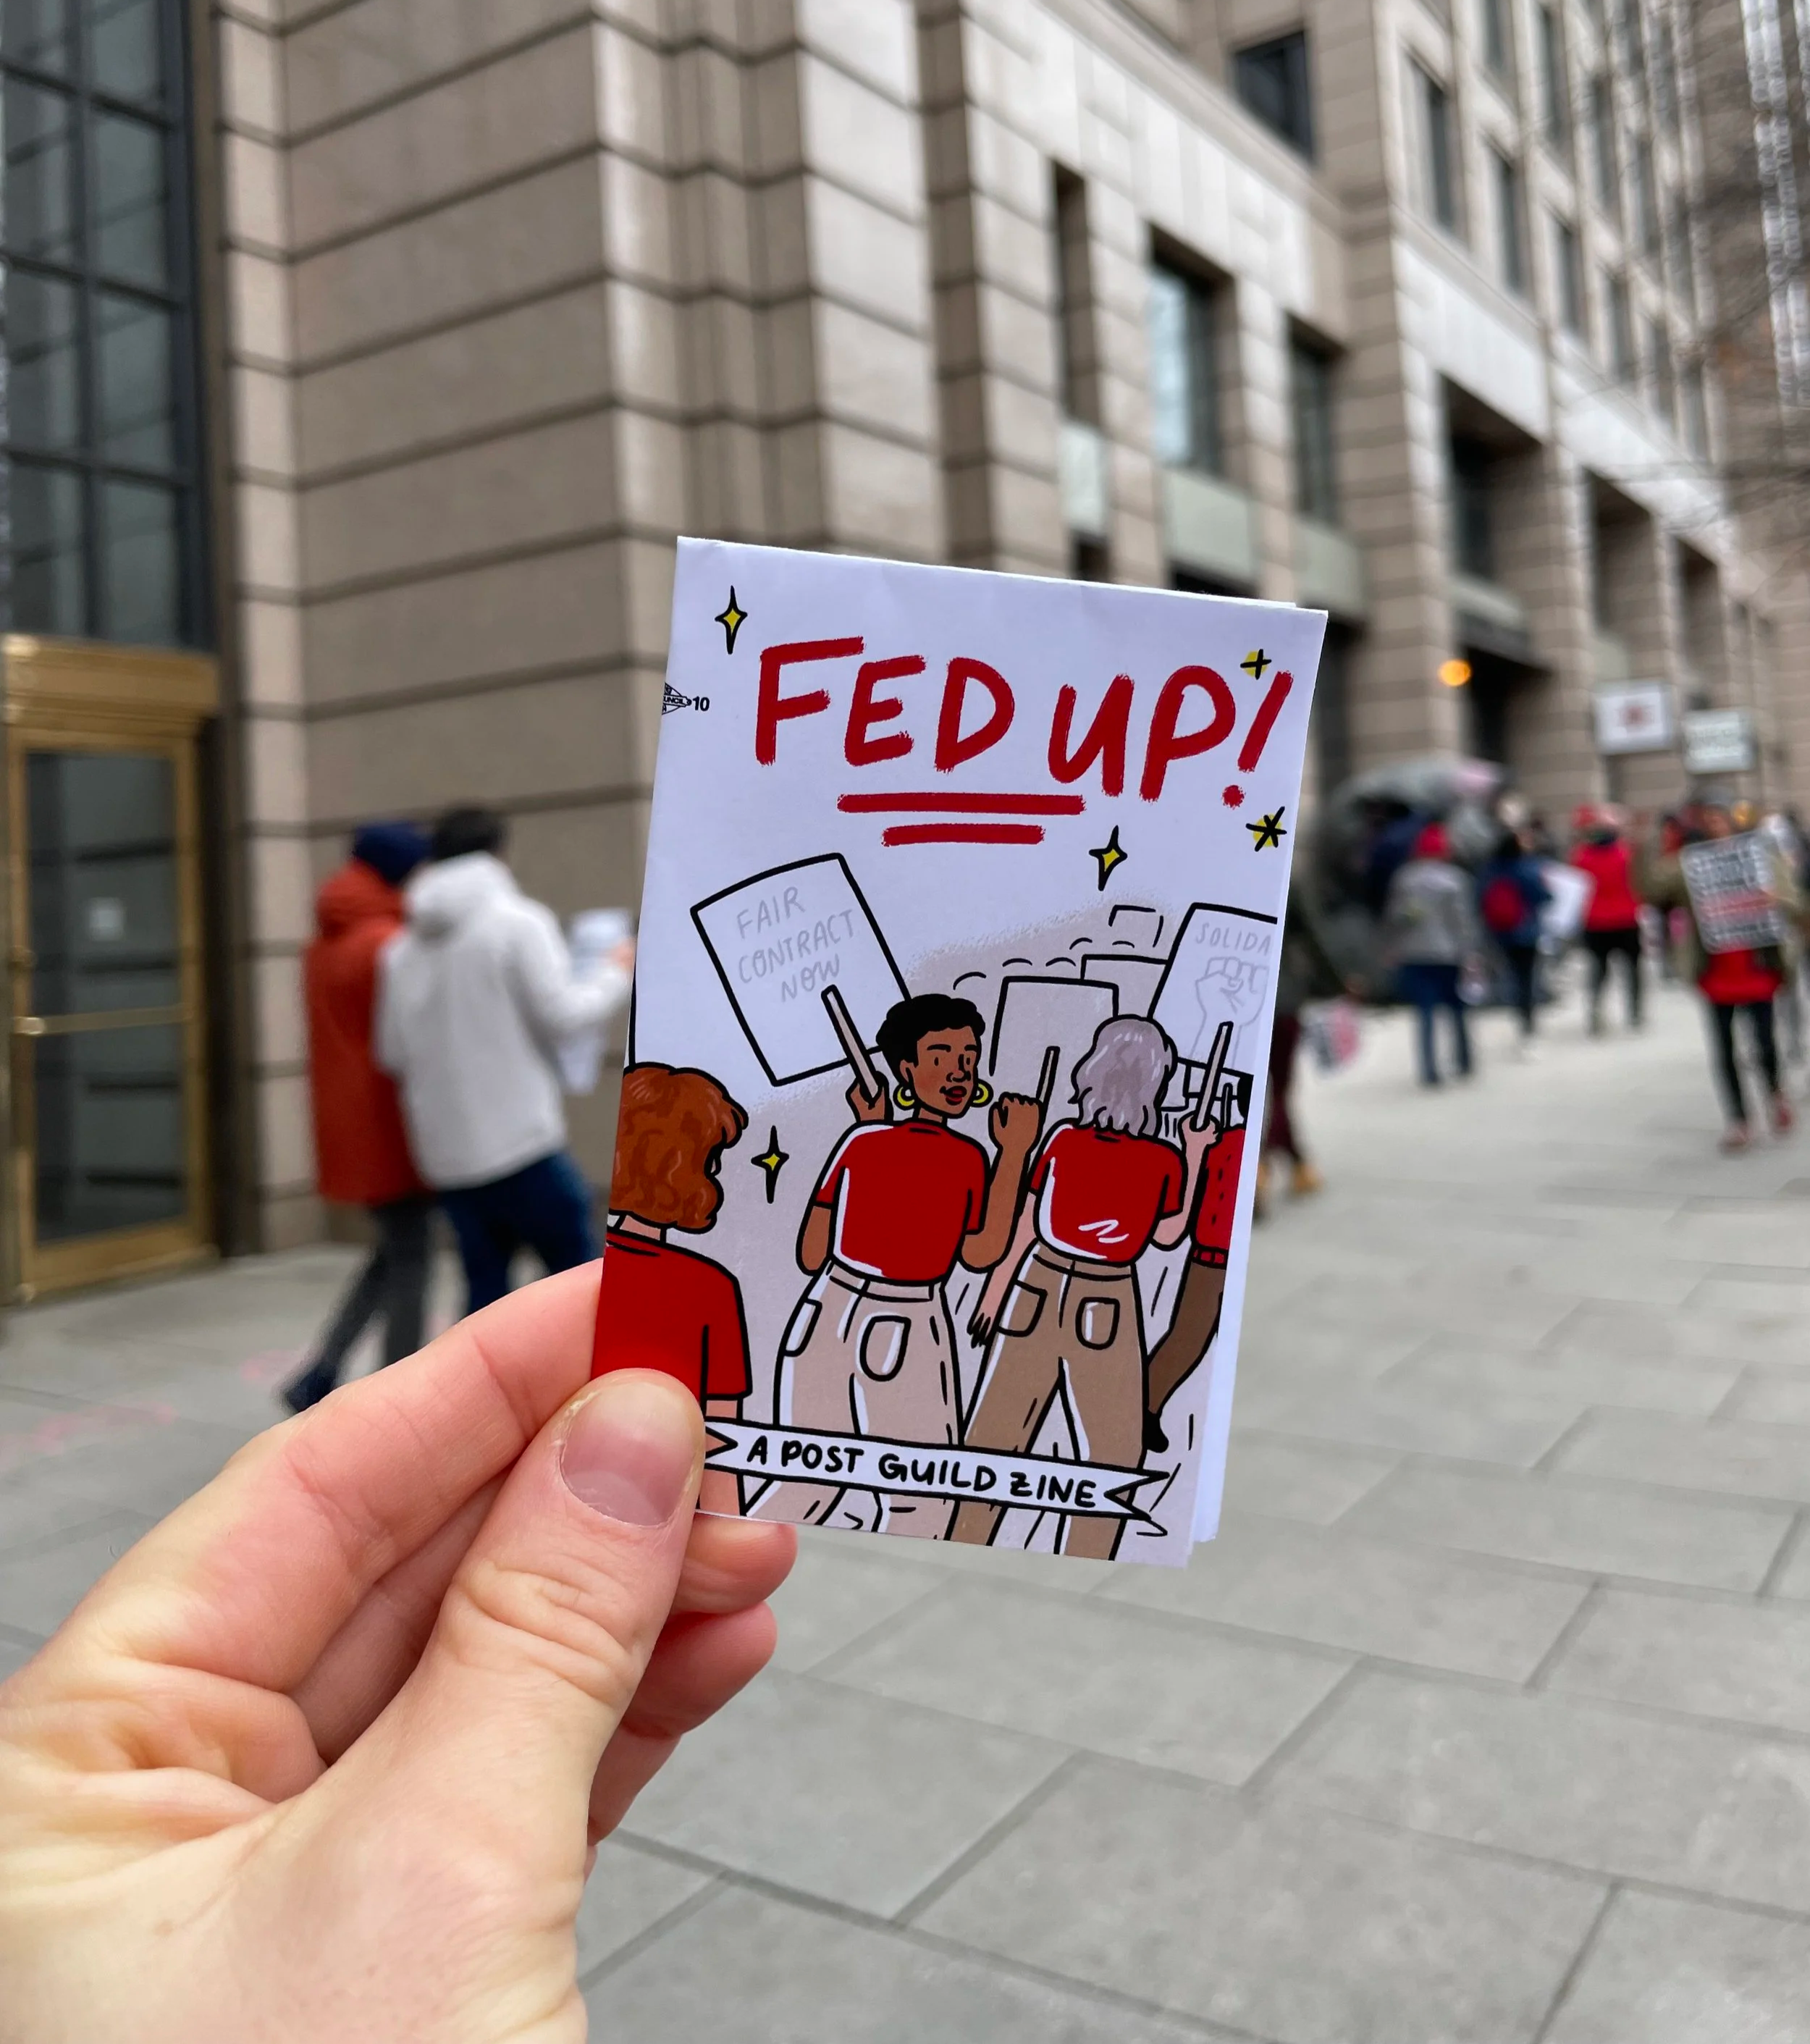 FED UP!
10
FAIR
CONTRACT
NOW
SOLIDA
A POST GUILD ZINE